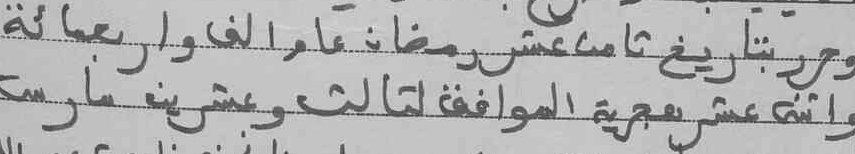 وحرر بتاريخ ثامن عشر رمضان عام الف واربعمائة
واثنى عشر هجرية الموافق لثالث وعشرين مارس